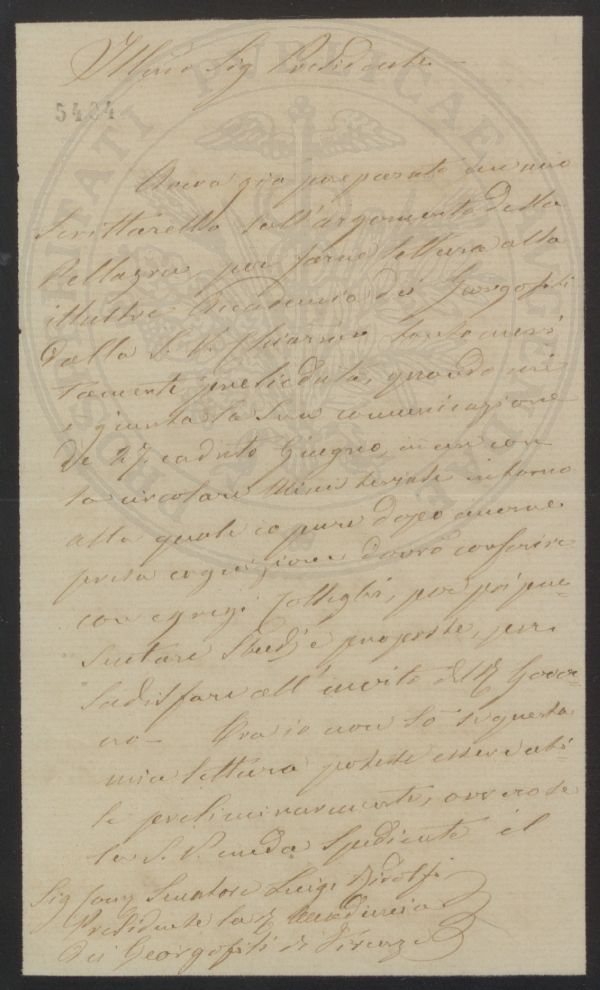 Illmo Sig Presidente
5404
Aveva già preparato un mio
Scrittarello sull'argomento della
Pellagra, per farne lettura alla
illustre Accademia dei Georgofili
dalla S. V. Chiarma tanto meri
tamente presieduta, quando mi
è giunta la Sua comunicazione
de 27. caduto Giugno, in un con
la circolare Ministeriale intorno
alla quale io pure dopo averne
presa cognizione dovrò conferire
con egregi Colleghi, per poi pre=
sentare Studj e proposte, per
sodisfare all'invito del R Gover=
no — Ora io non so se questa
mia lettura potesse essere uti=
le preliminarmente, ovvero se
la S. V. creda spediente il
Sig Comz Senatore Luigi Ridolfi
Presidente la R Accademia
dei Georgofili di Firenze
PROSPERITATI PUBLICAE AUGENDAE